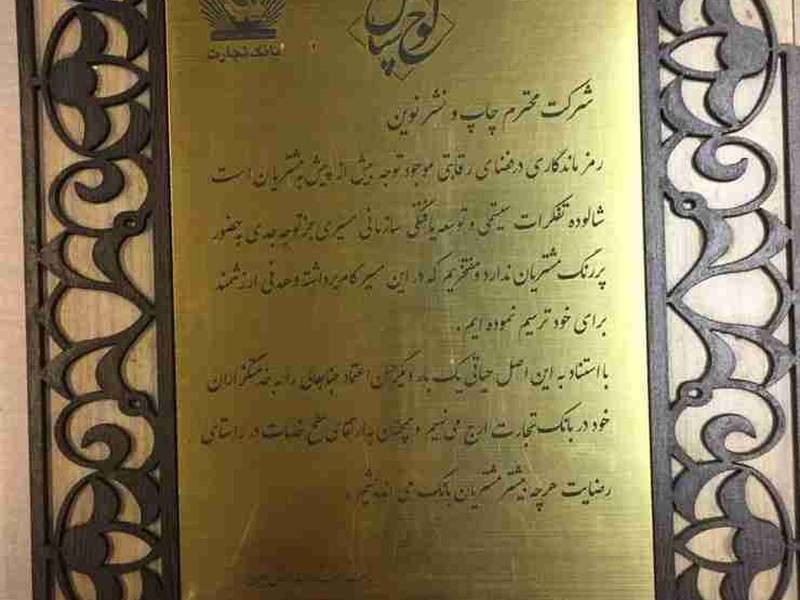 لوح سپاس
بانک تجارت
شرکت محترم چاپ و نشر نوین
رمز ماندگاری در فضای رقابتی موجود توجه بیش از پیش به مشتریان است
شالوده تفکرات سیستمی و توسعه یافتگی سازمانی مسیری جز توجه جدی به حضور
پررنگ مشتریان ندارد و مفتخریم که در این مسیر گام برداشته و هدفی ارزشمند
برای خود ترسیم نموده ایم .
با استناد به این اصل حیاتی یک بار دیگر حسن اعتماد جنابعالی را به خدمتگزاران
خود در بانک تجارت ارج می نهیم و همچنان به ارتقای سطح خدمات در راستای
رضایت هرچه بیشتر مشتریان بانک می اندیشیم .